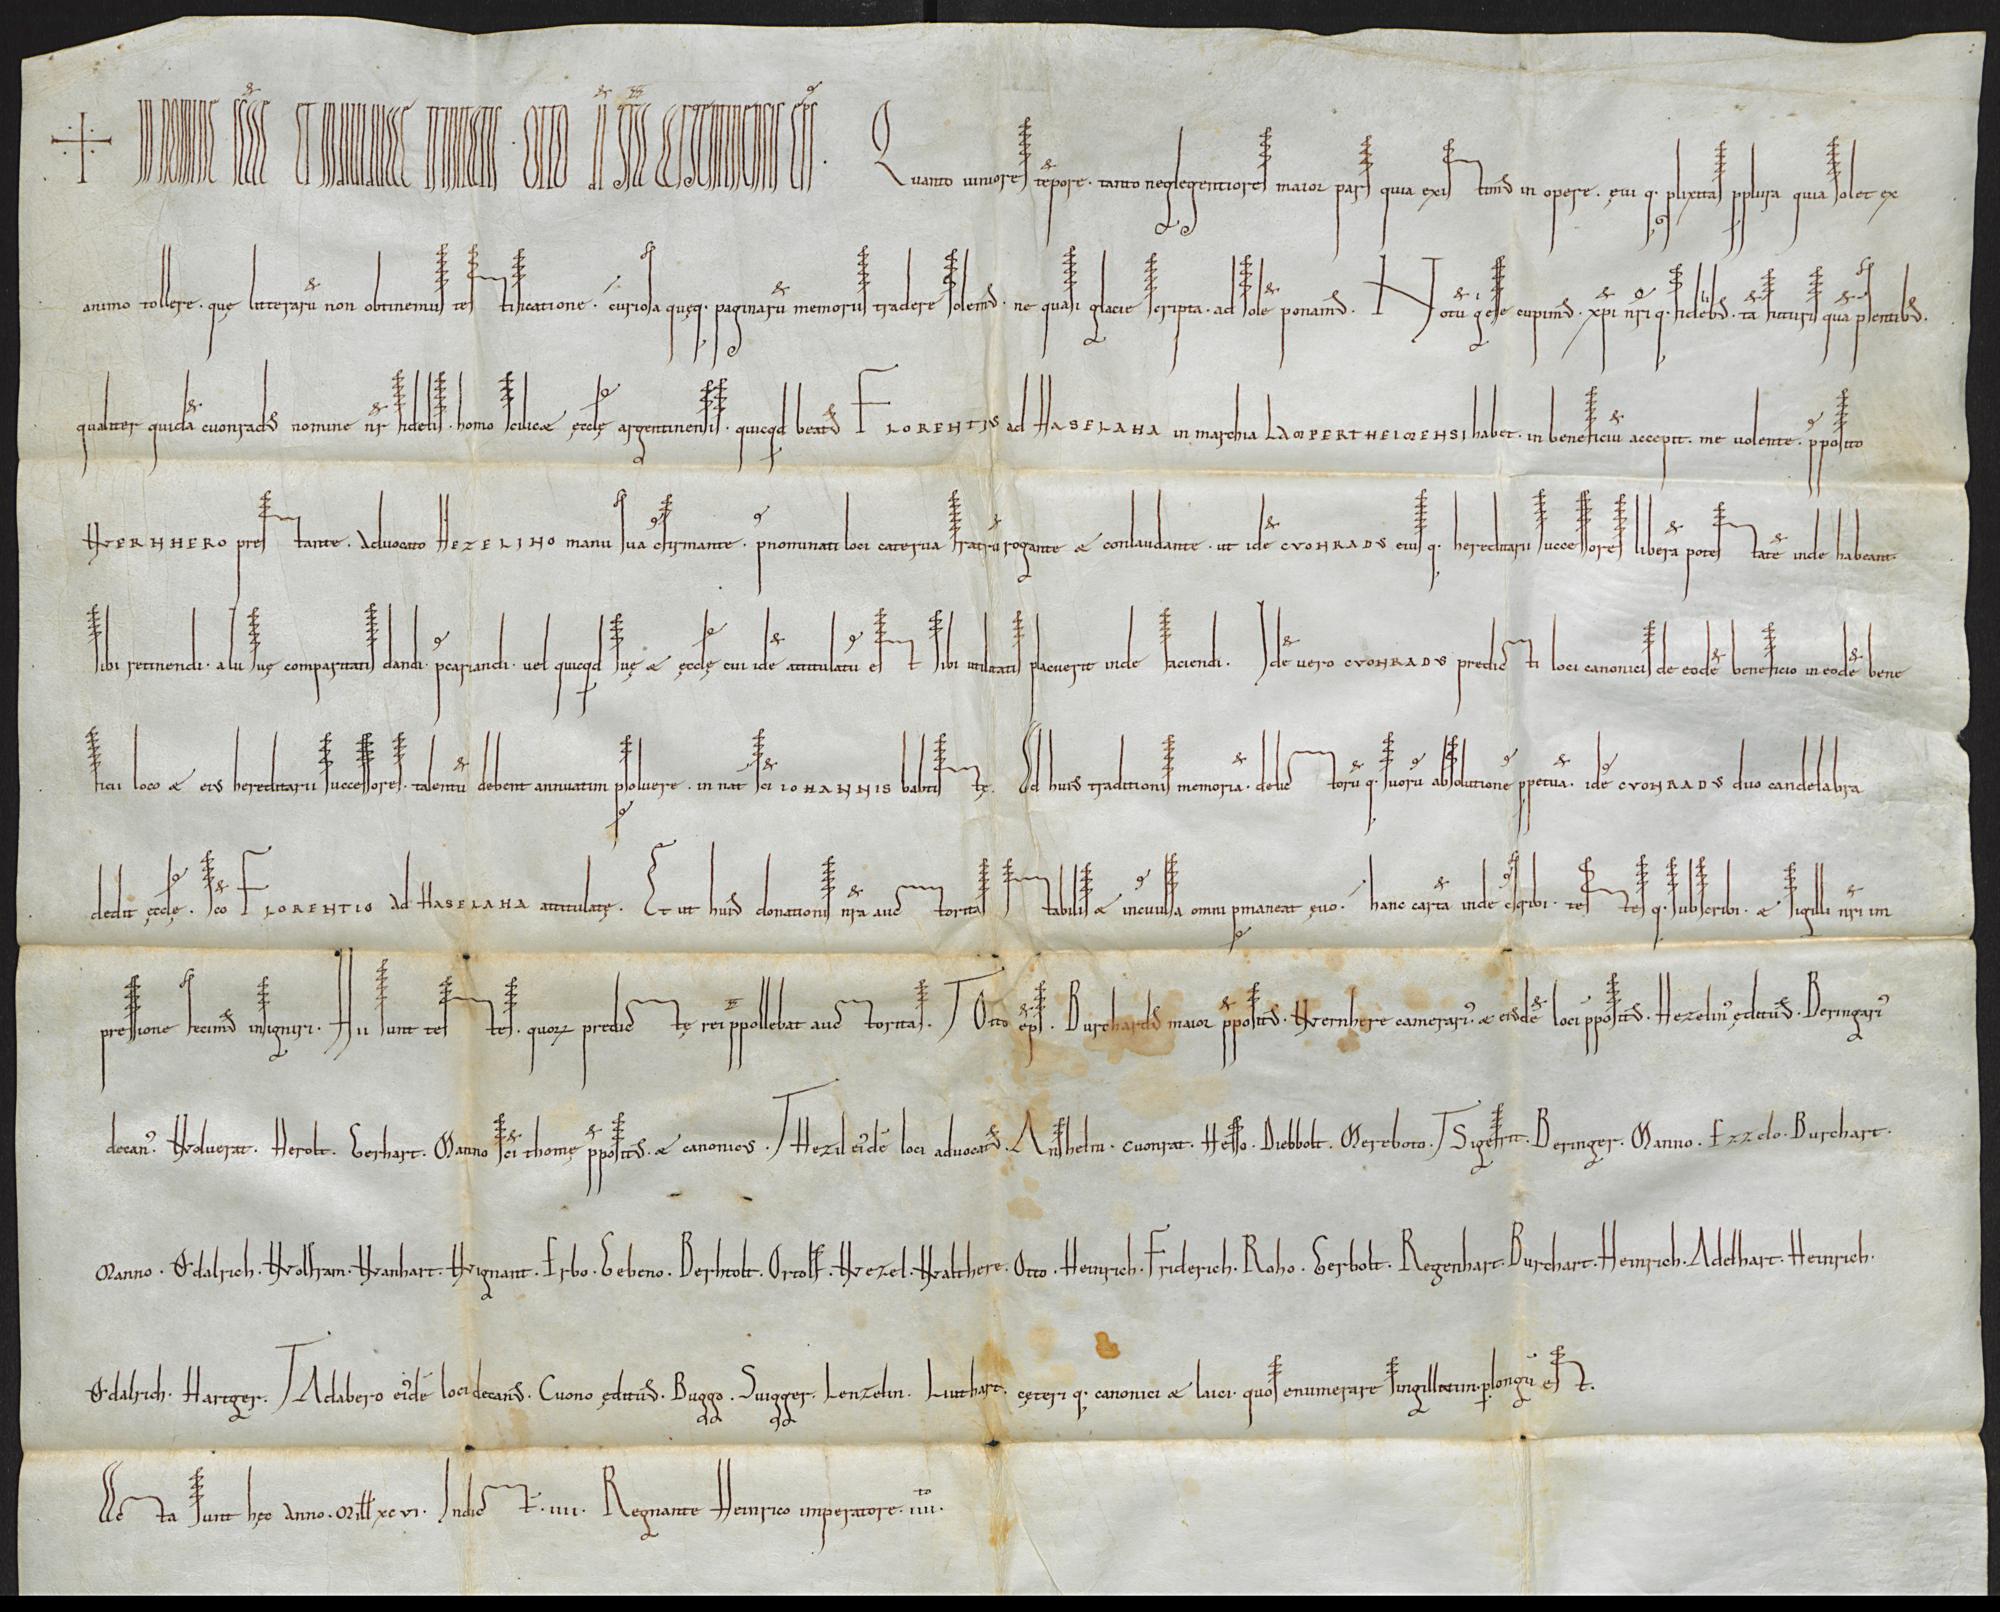 IN NOMINE SCĒ ET INDIVIDUE TRINITATIS. OTTO DĪ GRĀ ARGENTINENSIS EPS. Quanto iuniores tēpore. tanto neglegentiores maior pars quia existimꝰ in opere. ęui q; plixitas pplura quia solet ex
animo tollere. quę litterarū non obtinemus testificatione. curiosa quęq; paginarū memoriis tradere solemꝰ. ne quasi glacie scripta. ad solē ponamꝰ. Notū gͥ esse cupimꝰ. xpi nr̄i q; fidelibꝰ. tā futuris quā psentibꝰ.
qualiter quidā cuonradꝰ nomine nr̄ fidelis. homo scilicæ ęccłę argentinensis. quicqd beatꝰ FLORENTIVS ad HASELAHA in marchia LAMPERTHEIMENSI habet. in beneficiū accepit. me uolente. pposito
WERNHERO prestante. Advocato HEZELINO manu sua cfirmante. pnominati loci caterua fratrū rogante & conlaudante. ut idē CVONRADVS eiusq; hereditarii successores liberā potestatē inde habeant.
sibi retinendi. a lu suę comparitatis dandi. pcariandi. uel quicqd suę & ęccłę cui idē attitulatū est sibi utilitatis placuerit inde faciendi. Idē uero CVONRADVS predicti loci canonicis de eodē beneficio in eodē bene
ficii loco & eiꝰ hereditarii successores. talentū debent annuatim psoluere. in nat̄ sc̄i IOHANNIS babtistę. Ad huiꝰ traditionis memoriā. delictorūq; suorū absolutionē ppetuā. idē CVONRADVS duo candelabra
dedit ęccłę. Sc̄o FLORENTIO ad HASELAHA attitulatę. Et ut huiꝰ donationis nr̄a auctoritas stabilis & inconuulsa omni pmaneat ęuo. hanc cartā inde cscribi. testesq; subscribi. & sigilli nr̄i im
pressione fecimꝰ insigniri. Hii sunt testes. quorꝝ predictę rei ppollebat auctoritas. Otto ep̄s. Burchardꝰ maior ppositꝰ. Wernhere camerari᾿. & eiꝰdē loci ppositꝰ. Hezelin᾿ ędituꝰ. Beringari᾿
decan᾿. Wolverat. Herolt. Gerhart. Manno sc̄i thomę ppositꝰ. & canonicꝰ. Hezil ei᾿dē loci advocatꝰ. Anshelm. Cuonrat. Hesso. Diebbolt. Mereboto. Sigefrit. Beringer. Manno. Ezzelo. Burchart.
Manno. Odalrich. Wolfram. Wanhart. Wignant. Erbo. Gebeno. Berhtolt. Ortolf. Wezel. Walthere. Otto. Heinrich. Friderich. Roho. Gerbolt. Regenhart. Burchart. Heinrich. Adelhart. Heinrich.
Odalrich. Hartger. Adabero ei᾿dē loci decanꝰ. Cuono ędituꝰ. Buggo. Suigger. Lenzelin. Liuthart. cęteri q; canonici & laici. quos enumerare singillatim. plongū est.
Acta sunt hęc Anno. Mill xc vi. Indict̄. iiii. Regnante Heinrico imperatore. iiii.ᵗᵒ